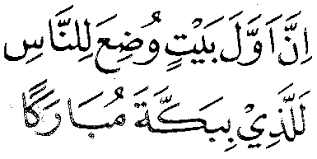 اِنَّ اَوَّلَ بَيْتٍ وُضِعَ لِلنَّاسِ
لَلَّذِيْ بِبَكَّةَ مُبَارَكًا